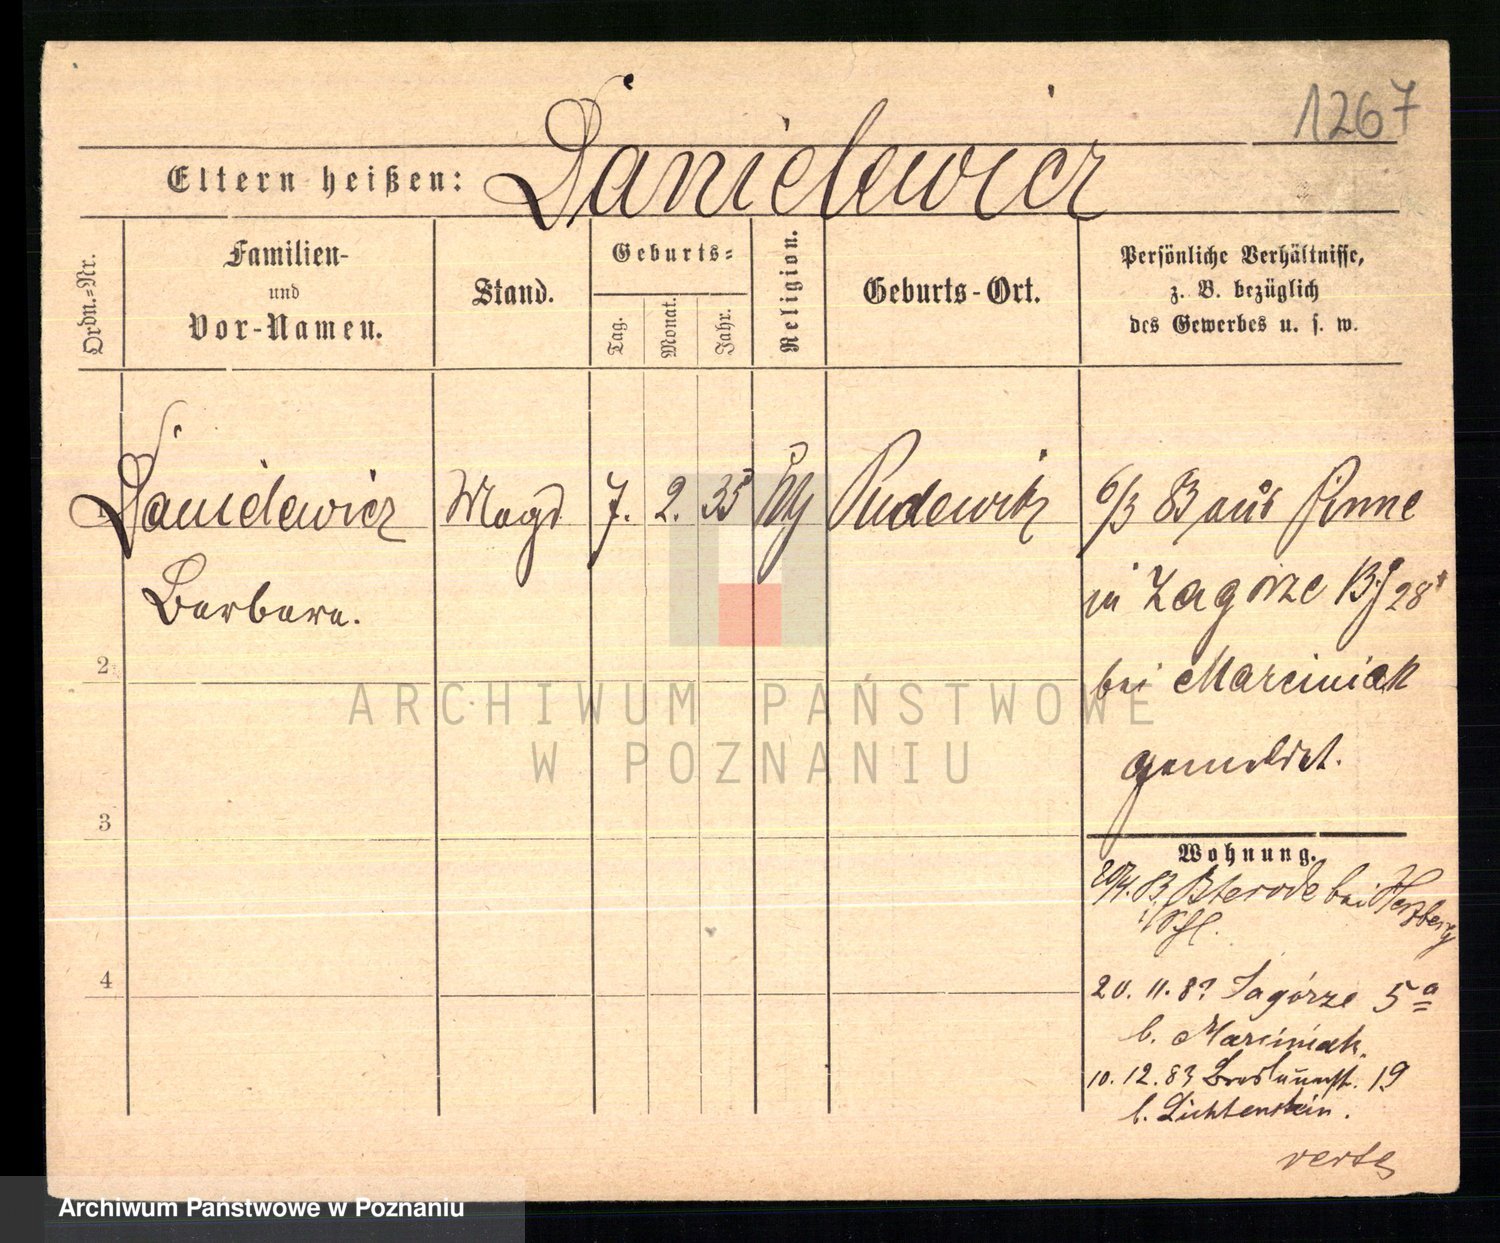 1267
Eltern heißen: Danielewicz
Ordn.-Nr.
Familien-
und
Vor-Namen.
Stand.
Geburts-
Tag.
Monat.
Jahr.
Religion.
Geburts-Ort.
Persönliche Verhältnisse,
z. B. bezüglich
des Gewerbes u. s. w.
Danielewicz Magd 7. 2. 35 Pudewitz 6/3 83 aus Pinne
Barbara.
in Zagórze 28
2
bei Marciniak
gemeldet.
3
Wohnung.
83 Osterode bei Herzberg
4
20. 11. 83 Zagórze 5a
b. Marciniak.
10. 12. 83 19
b. Lichtenstein.
verte
ARCHIWUM PAŃSTWOWE
W POZNANIU
Archiwum Państwowe w Poznaniu